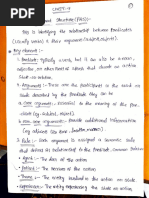 UNIT-4
Structure (PAS):-
is identifying the relationship between Predicates
(usually verbs) & their arguments (subject, objects).
* Key elements :-
1. Predicate: Typically a verb, but it can also be a noun,
adjective or other Part of speech that denotes an action
State or relation.
2. Arguments:- These are the Participants in the event or
State described by the Predicate they are
a. Core arguments:- essential to complete the
(eg subject, object)
b. non core arguments:- Provide additional information
(eg adjunct like time, location, manner).
3. role:- Each argument is assigned a Semantic role
that defines its relationship to the Predicate. Common
* Agent :- The doer of the action
* Patient :- The receiver of the action
* :- The entity involved in the action or State.
* Experiencer:- The entity experiencing the State or action.